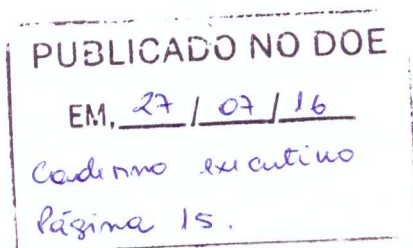 PUBLICADO NO DOE
EM, 27 / 07 / 16
Caderno executivo
Página 15.